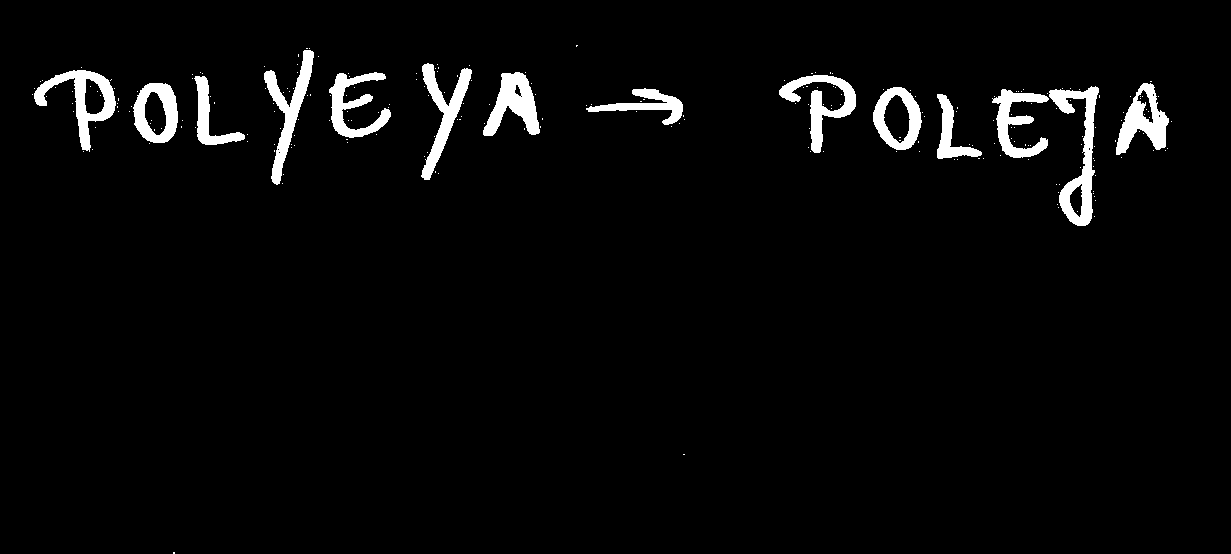 POLYEYA → POLEJA